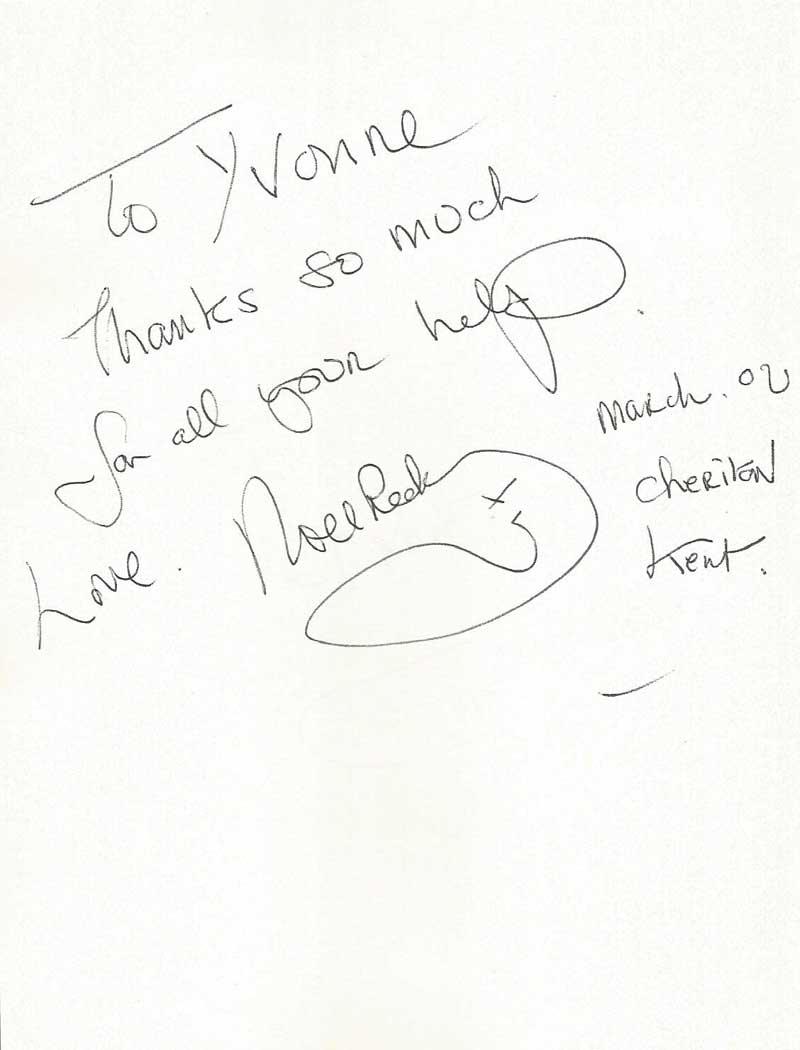 To Yvonne
Thanks so much
for all your help.
Love. Noel Redding x
March. 02
Cheriton
Kent.